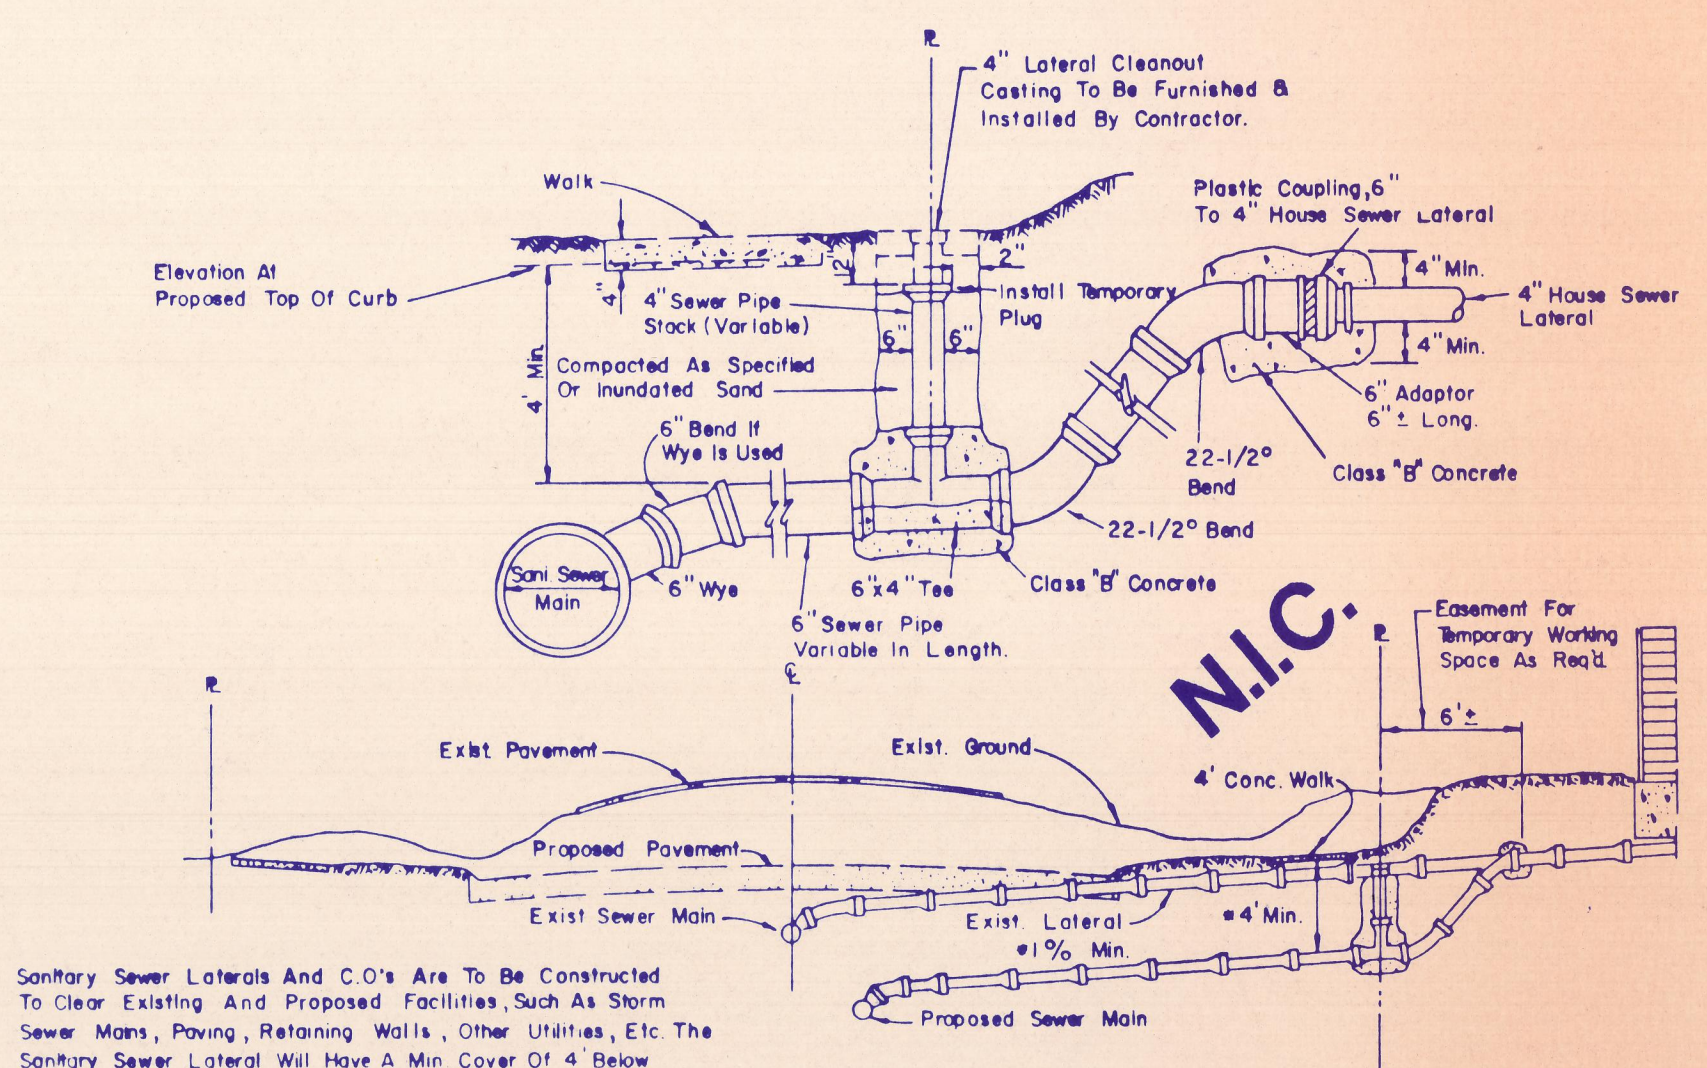 PL
4" Lateral Cleanout
Casting To Be Furnished &
Installed By Contractor.
Walk
Plastic Coupling, 6"
To 4" House Sewer Lateral
Elevation At
Proposed Top Of Curb
4"
12"
2"
4" Sewer Pipe
Stack (Variable)
Install Temporary
Plug
4" Min.
4" House Sewer
Lateral
4" Min.
6"
6"
4' Min.
Compacted As Specified
Or Inundated Sand
6" Adaptor
6" ± Long.
6" Bend If
Wye Is Used
22-1/2° 
Bend
Class "B" Concrete
22-1/2° Bend
Sani. Sewer
Main
6" Wye
6"x4" Tee
Class "B" Concrete
6" Sewer Pipe
Variable In Length.
N.I.C.
Easement For
Temporary Working
Space As Req'd.
PL
CL
PL
6' ±
Exist. Pavement
Exist. Ground
4' Conc. Walk
Proposed Pavement
Exist Sewer Main
Exist. Lateral
*1% Min.
*4' Min.
Proposed Sewer Main
Sanitary Sewer Laterals And C.O's Are To Be Constructed
To Clear Existing And Proposed Facilities, Such As Storm
Sewer Mains, Paving, Retaining Walls, Other Utilities, Etc. The
Sanitary Sewer Lateral Will Have A Min Cover Of 4' Below